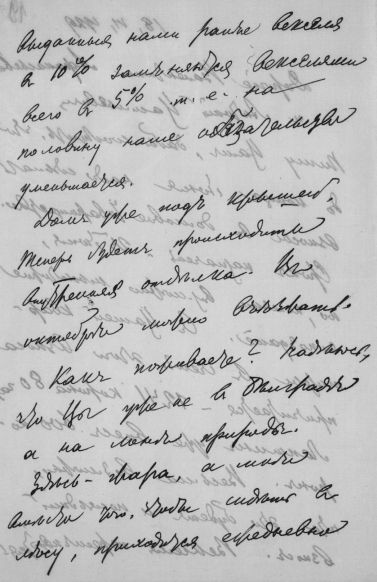 выданныя нами ранѣе векселя
в 10% замѣняются векселями
всего в 5% т. е. на
половину наше обязательство
уменьшается.
Домъ уже подъ крышей,
теперь будетъ происходить
внутренняя отдѣлка. Въ
октябрѣ можно въѣзжать.
Какъ поживаете? Надѣюсь,
что Вы уже не в Бѣлградѣ
а на лонѣ природы.
Здѣсь – жара, а мнѣ
вмѣсто того, чтобы сидѣть в
лѣсу, приходится ежедневно